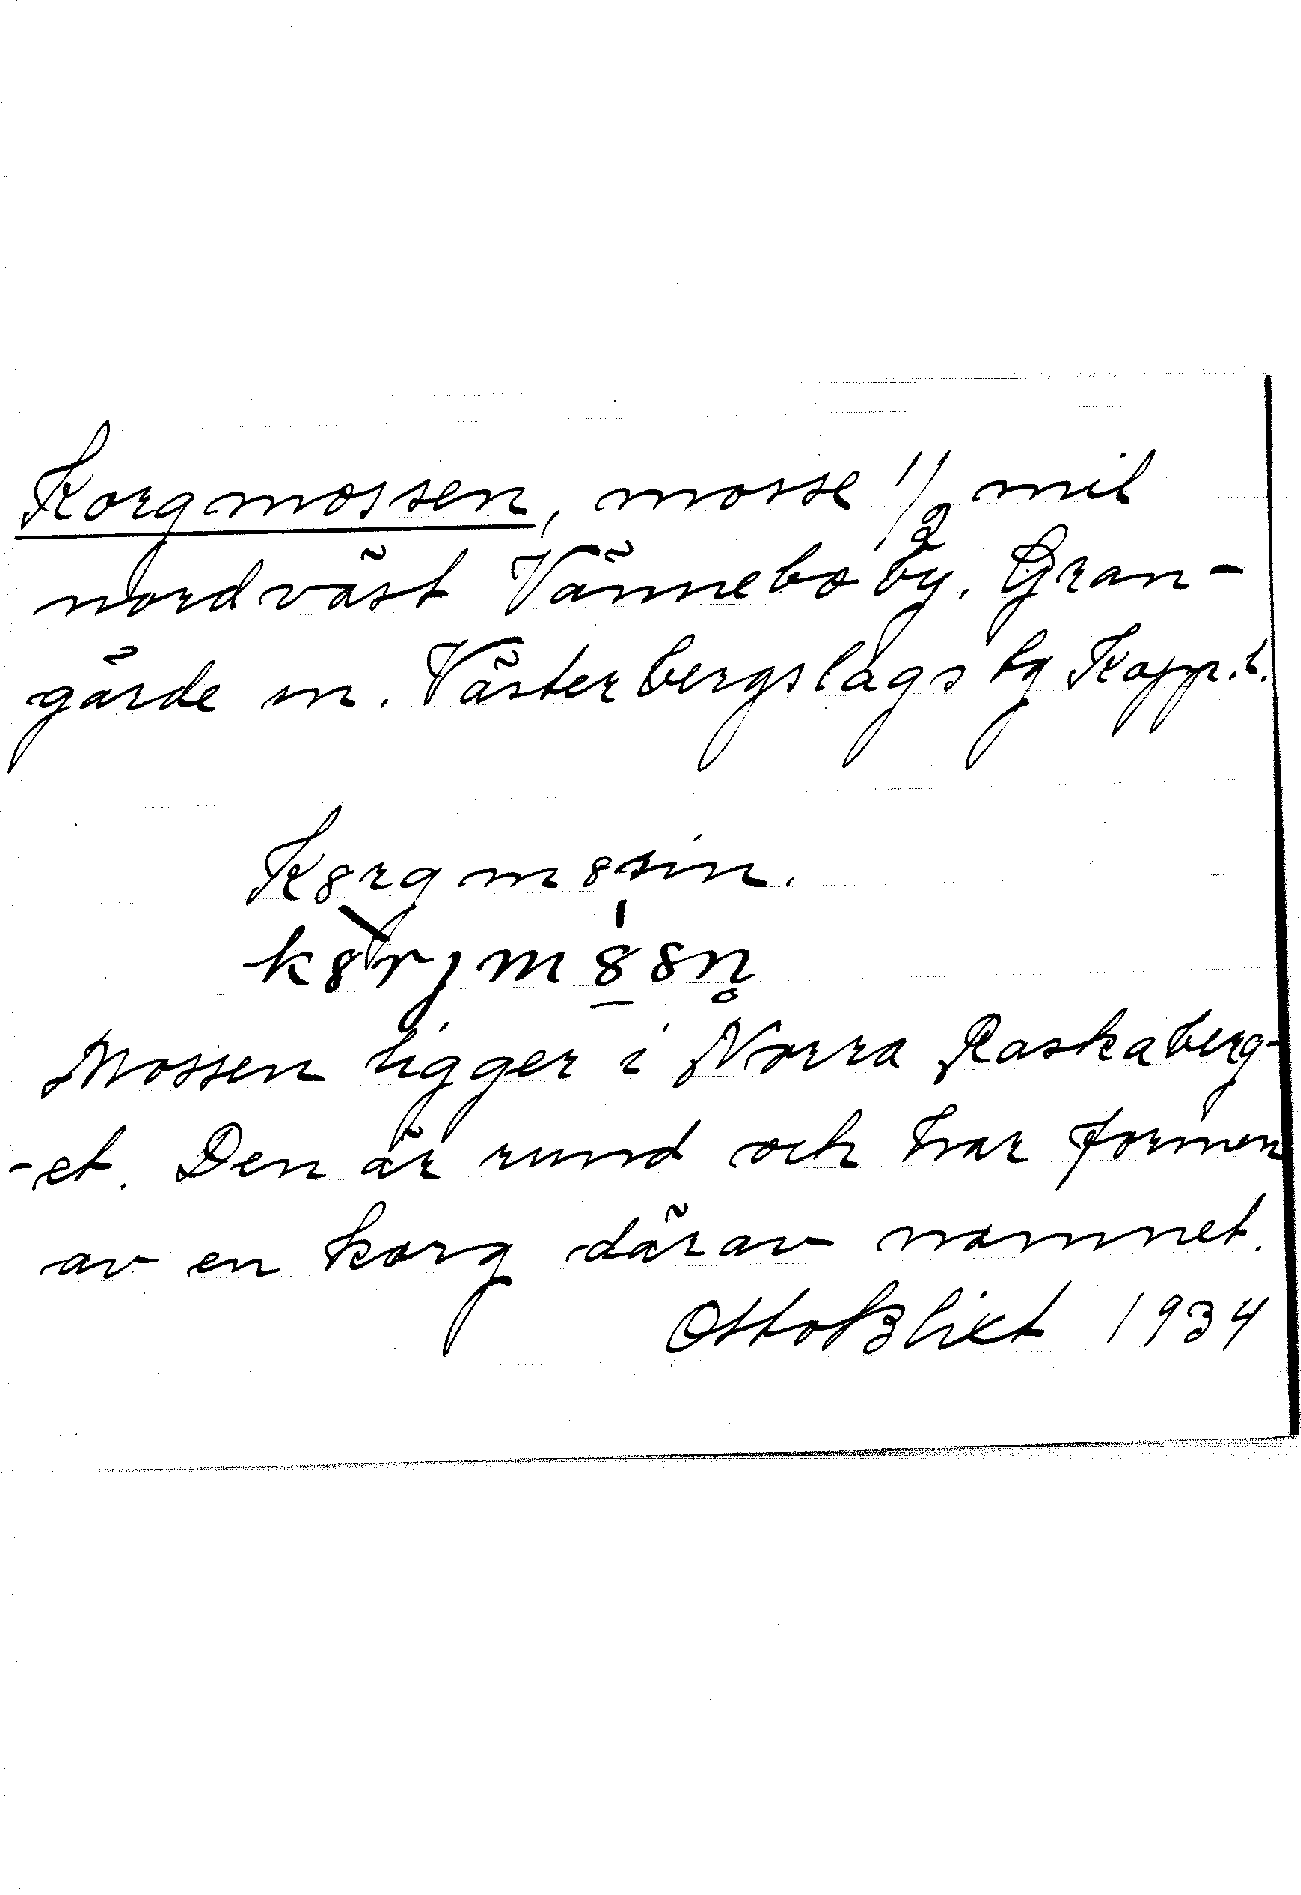 Korgmossen, mosse 1/2 mil
nordväst Vännebo by. Gran-
gärde sn. Västerbergslags tg Kopp.l.
K8rgm8sin.
k8rjm8sn̥
Mossen ligger i Norra Raskaberg-
-et. Den är rund och har formen
av en korg därav namnet.
Otto Blixt 1934